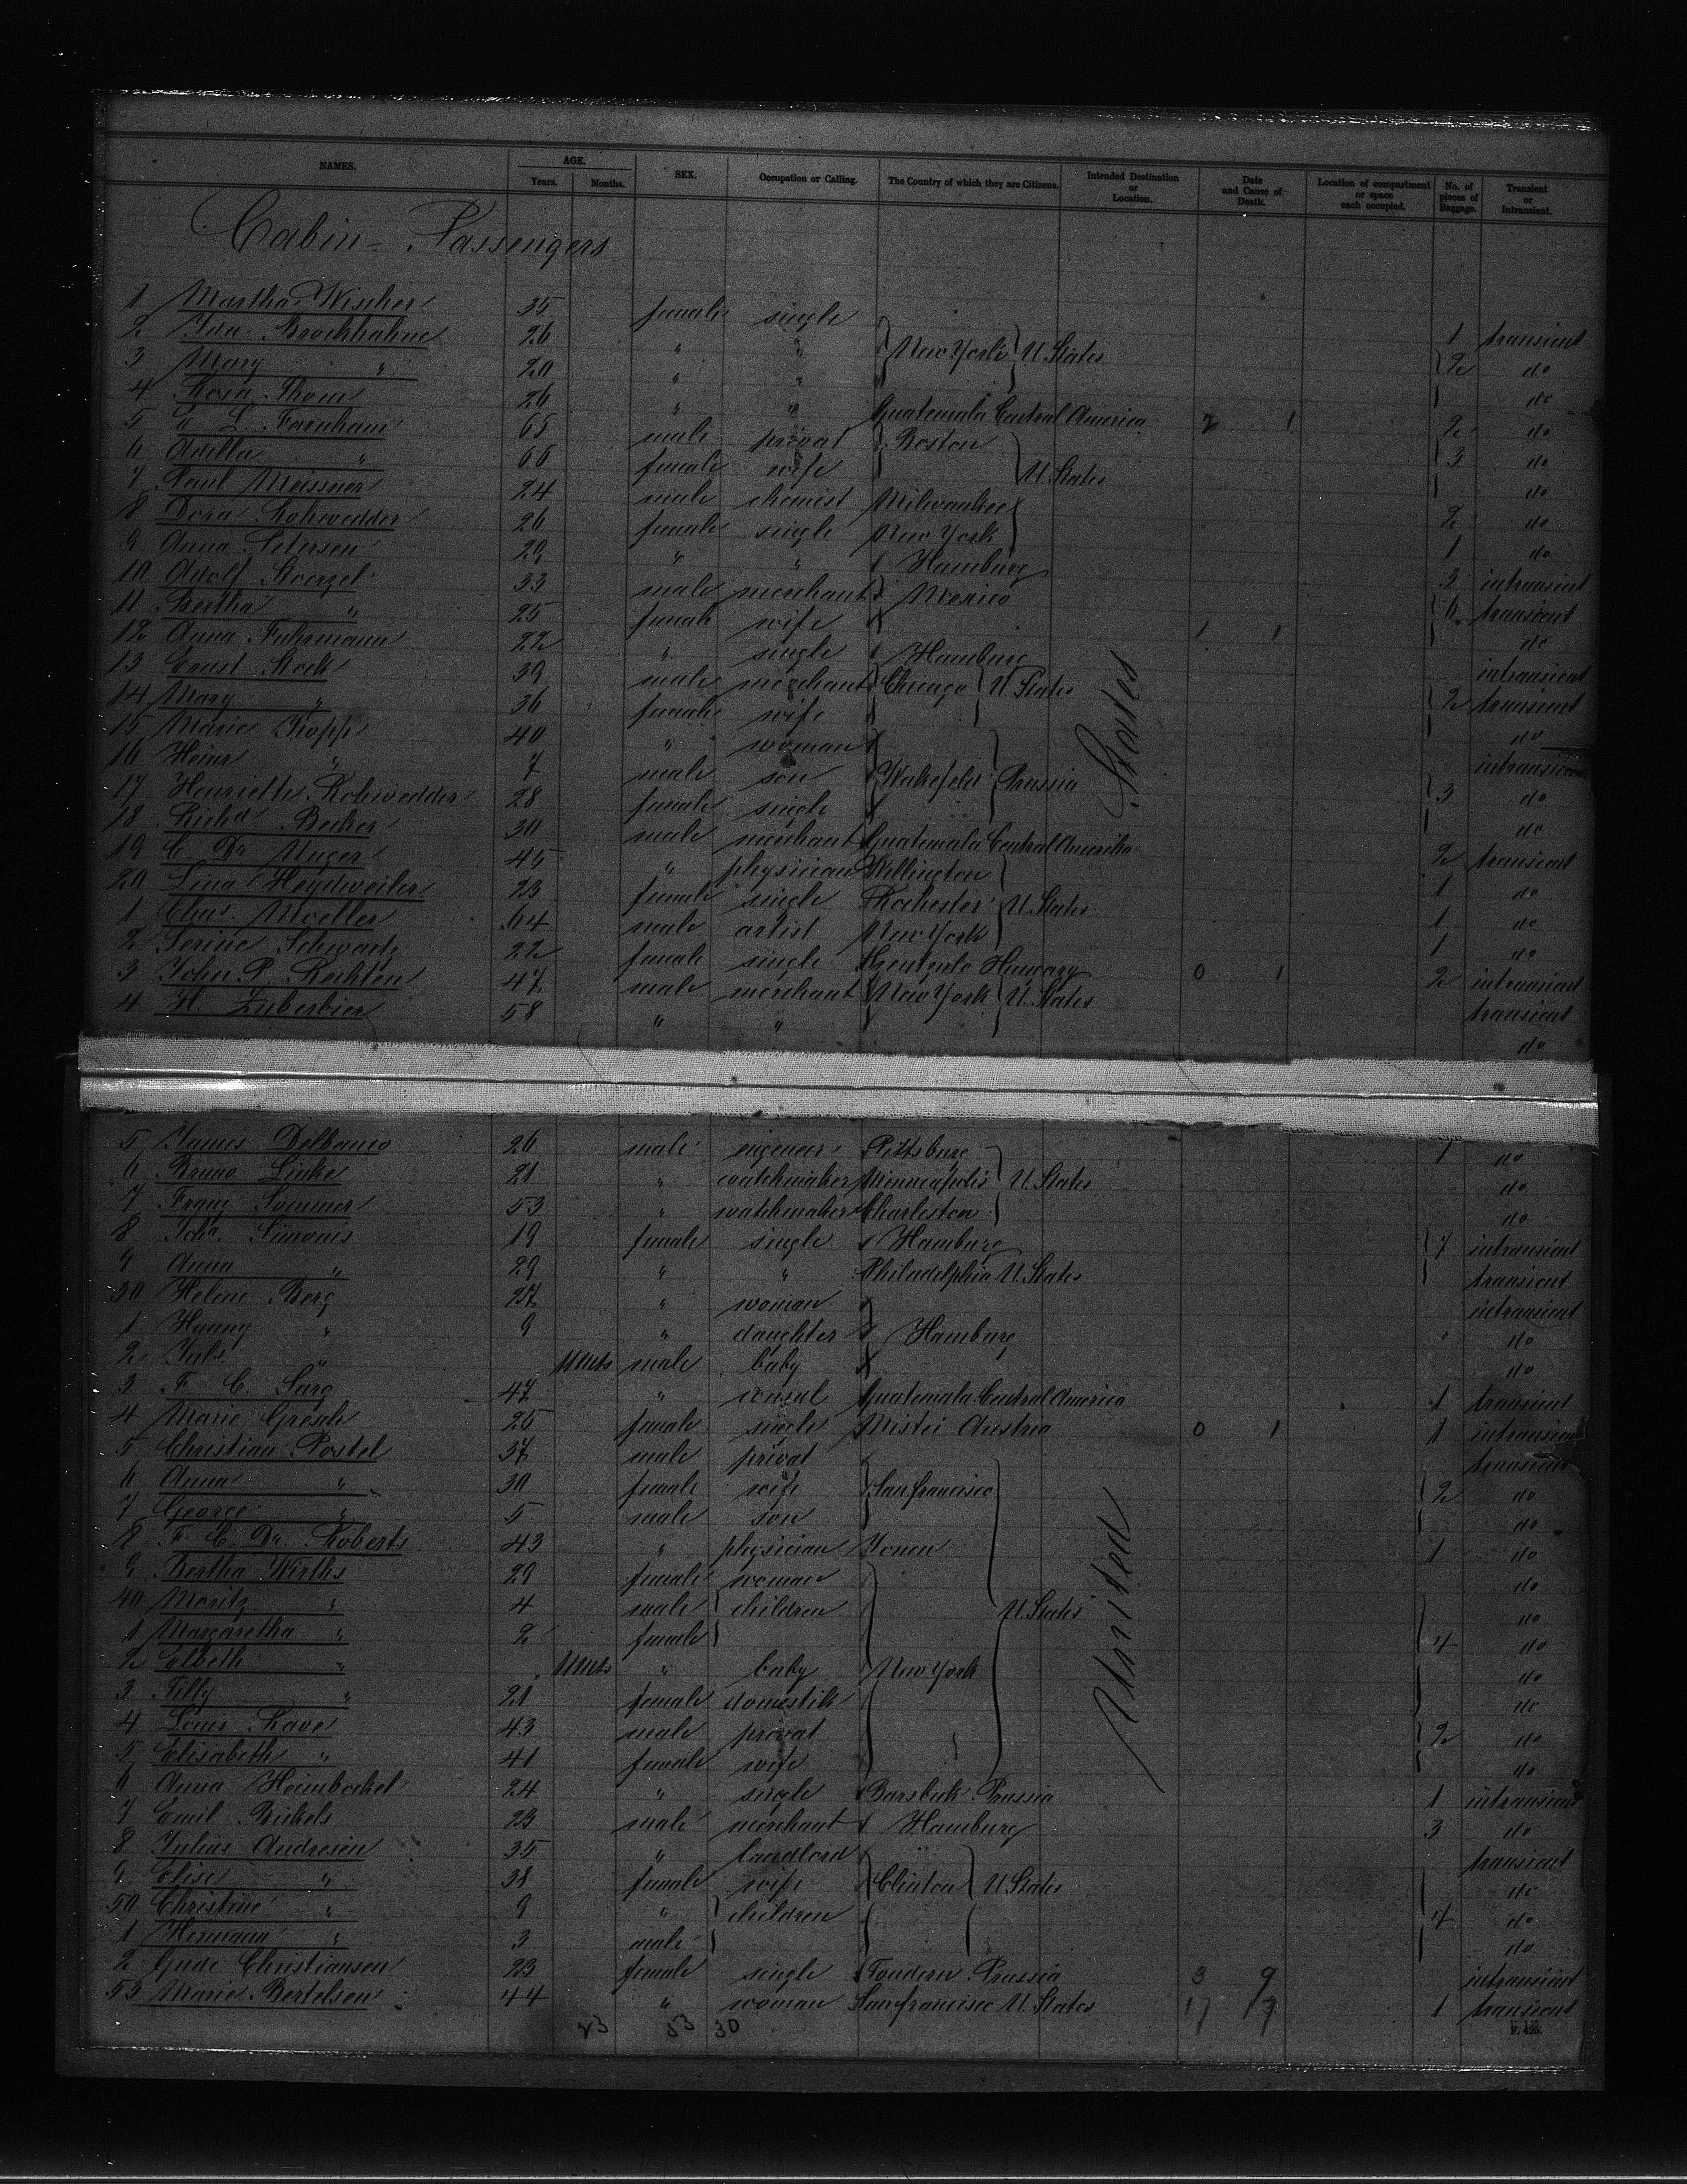 NAMES. AGE. Years. Months. SEX. Occupation or Calling. The Country of which they are Citizens. Intended Destination or Location. Date and Cause of Death. Location of compartment or space each occupied. No. of pieces of Baggage. Transient or Intransient.
Cabin-Passengers
1 Martha Wischer 35 female single 1 transient
2 Ida Brockhahne 26 " " New York U. States 2 do
3 Mary " 20 " " do
4 Rosa Thom 26 " " Guatemala Central America 2 1 2 do
5 L. Farnham 65 male privat Boston 3 do
6 Adilla " 66 female wife U. States do
7 Paul Meissner 24 male chemist Milwaukee 2 do
8 Dora Rohwedder 26 female single New York 1 do
9 Anna Petersen 29 " " Hamburg 3 intransient
10 Adolf Stoerzel 33 male merchant Mexico 6 transient
11 Bertha " 25 female wife 1 1 do
12 Anna Fuhrmann 22 " single Hamburg intransient
13 Ernst Stock 39 male merchant Chicago U. States 2 transient
14 Mary " 36 female wife do
15 Marie Kopp 40 " woman intransient
16 Heinr " 7 male son Prussia 3 do
17 Henriette Rohwedder 28 female single do
18 Richd. Becker 30 male merchant Guatemala Central America 2 transient
19 C. Dr. Unger 45 " physician Wellington 1 do
20 Lina Heydweiler 23 female single Rochester U. States 1 do
1 Chas. Moeller 64 male artist New York 1 do
2 Serine Schwartz 22 female single Hungary 0 1 2 intransient
3 John P. Rechten 47 male merchant New York U. States transient
4 H. Zuberbier 58 " " do
States
5 James Delbanco 26 male engeneer Pittsburg 1 do
6 Bruno Linke 21 " watchmaker Minneapolis U. States do
7 Franz Sommer 53 " watchmaker Charleston do
8 Joha. Simonis 19 female single Hamburg 7 intransient
9 Anna " 29 " " Philadelphia U. States transient
30 Helene Berg 27 " woman intransient
1 Hanny " 9 " daughter Hamburg do
2 " 11 mts male baby do
3 F. C. Sarg 47 " consul Guatemala Central America 1 transient
4 Marie 25 female single Austria 0 1 1 intransient
5 Christian Postel 37 male privat transient
6 Anna " 30 female wife San francisco 2 do
7 George " 5 male son do
8 F. C. Dr. Roberts 43 " physician 1 do
9 Bertha Wirths 29 female woman do
40 Moritz " 4 male children U. States do
1 Margaretha " 2 female 4 do
2 Elbeth " 11 mts " baby New York do
3 Tilly " 21 female domestik do
4 Louis Rave 43 male privat 2 do
5 Elisabeth " 41 female wife do
United
6 Anna Heimbockel 24 " single Prussia 1 intransient
7 Emil Bickels 23 male merchant Hamburg 3 do
8 Julius Andresen 35 " landlord transient
9 Elise " 38 female wife Clinton U. States do
50 Christine " 9 " children 4 do
1 Hermann " 3 male do
2 Gude Christiansen 23 female single Tondern Prussia 3 9 intransient
53 Marie Bertelsen 44 " woman San francisco U. States 17 1 transient
23 53 30